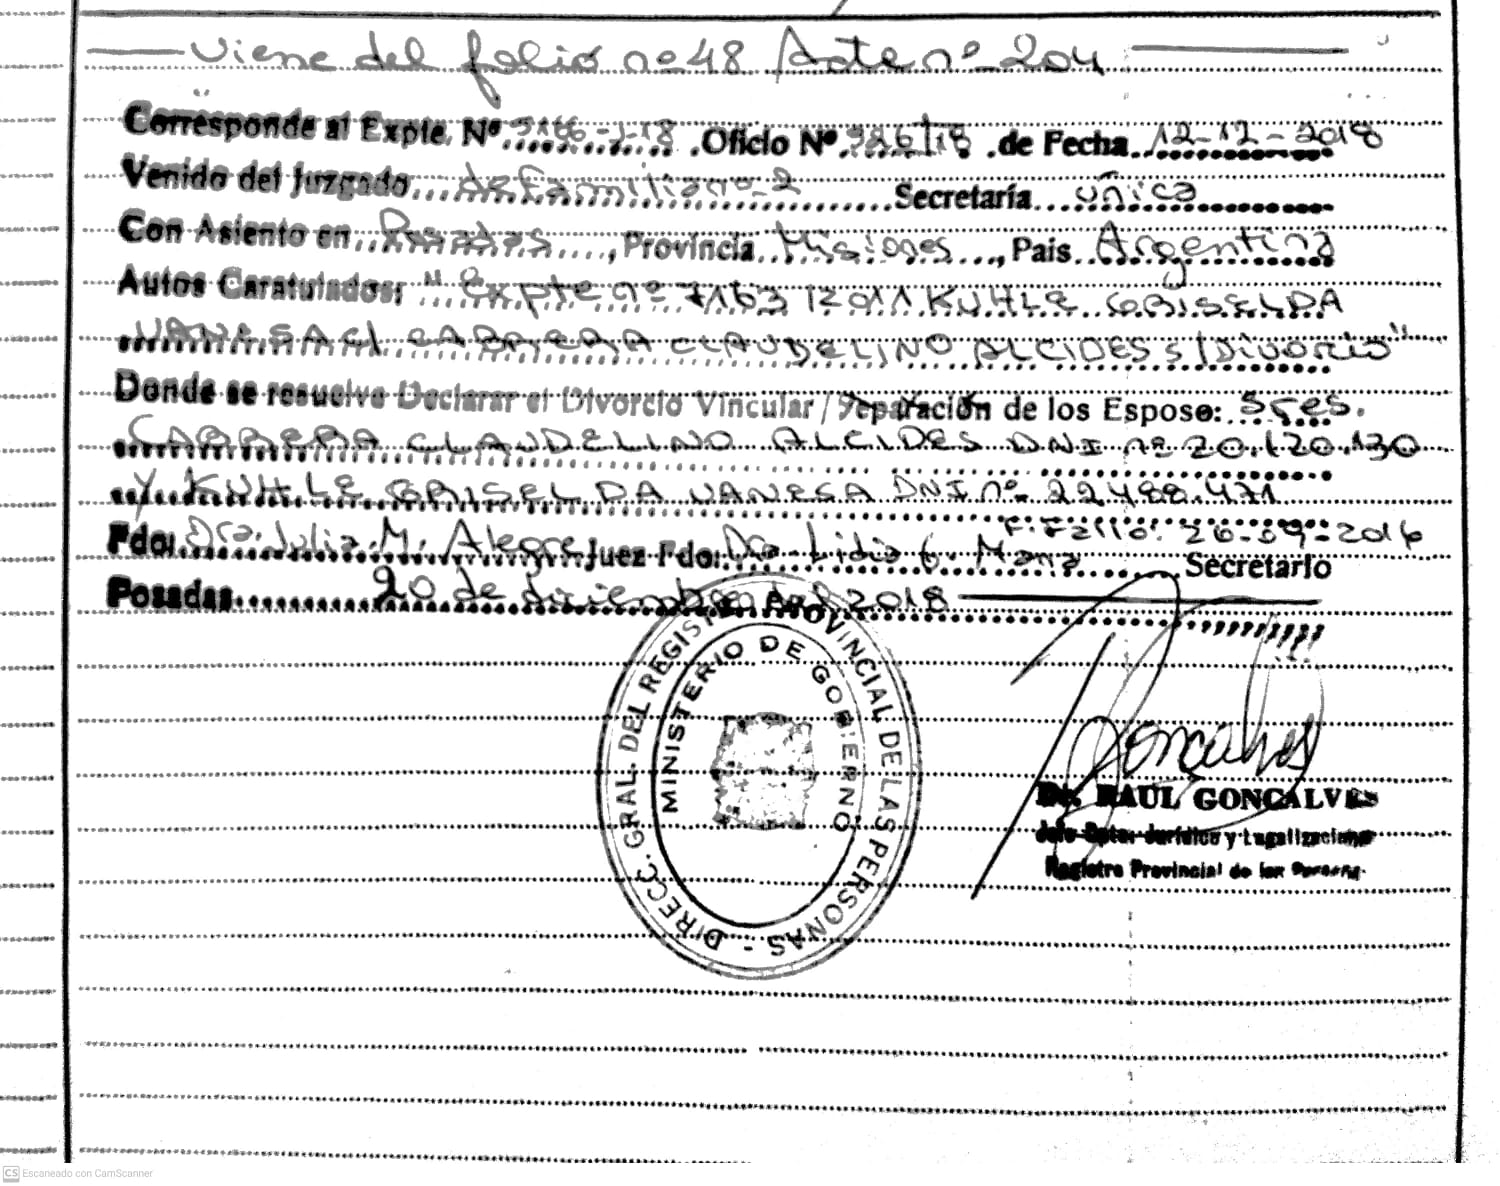 Viene del folio nº 48 Acta nº 204
Corresponde al Expte. Nº 5166-J-18 .Oficio Nº 986/18 .de Fecha 12-12-2018
Venido del Juzgado de Familia nº 2 Secretaría única
Con Asiento en Posadas, Provincia Misiones, Pais Argentina
Autos Caratulados: "Expte nº 7163/2011 KUHLE GRISELDA
VANESA C/ CABRERA CLAUDELINO ALCIDES s/DIVORCIO"
Donde se resuelve Declarar el Divorcio Vincular/Separación de los Esposo: Sres.
CABRERA CLAUDELINO ALCIDES DNI nº 20.120.130
Y KUHLE GRISELDA VANESA DNI nº 22.488.471
F. Fallo: 26-09-2016
Fdo: Dra. Julia M. Alegre Juez Fdo: Dra. Lidia Secretario
Posadas 20 de diciembre del 2018
DIRECC. GRAL. DEL REGISTRO PROVINCIAL DE LAS PERSONAS -
MINISTERIO DE GOBIERNO
Goncalves
Dr. RAUL GONCALVES
Jefe Dptor Jurídico y Legalizaciones
Registro Provincial de las Personas
CS Escaneado con CamScanner